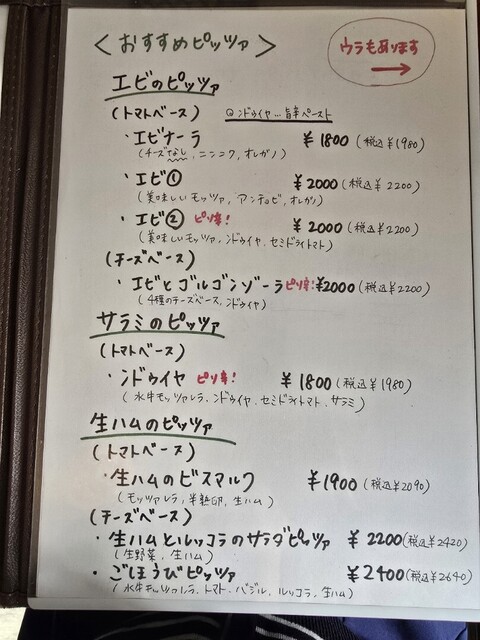 <おすすめピッツァ>
ウラもあります
→
エビのピッツァ
(トマトベース) @ンドゥイヤ…旨辛ペースト
・エビナーラ ¥1800(税込¥1980)
(チーズなし、ニンニク、オレガノ)
・エビ① ¥2000(税込¥2200)
(美味しいモッツァ、アンチョビ、オレガノ)
・エビ② ピリ辛! ¥2000(税込¥2200)
(美味しいモッツァ、ンドゥイヤ、セミドライトマト)
(チーズベース)
・エビとゴルゴンゾーラ ピリ辛! ¥2000(税込¥2200)
(4種のチーズベース、ンドゥイヤ)
サラミのピッツァ
(トマトベース)
・ンドゥイヤ ピリ辛! ¥1800(税込¥1980)
(水牛モッツァレラ、ンドゥイヤ、セミドライトマト、サラミ)
生ハムのピッツァ
(トマトベース)
・生ハムのビスマルク ¥1900(税込¥2090)
(モッツァレラ、半熟卵、生ハム)
(チーズベース)
・生ハムとルッコラのサラダピッツァ ¥2200(税込¥2420)
(生野菜、生ハム)
・ごほうびピッツァ ¥2400(税込¥2640)
(水牛モッツァレラ、トマト、バジル、ルッコラ、生ハム)